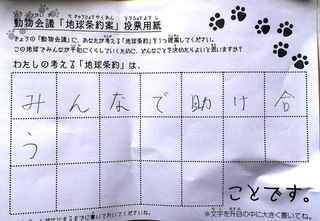 動物会議「地球条約案」投票用紙
きょうの「動物会議」に、あなたが考える「地球条約」を1つ提案してください。
この地球でみんなが平和にくらしていくために、どんなことを決めたらよいと思いますか?
わたしの考える「地球条約」は、
みんなで助け合
う
ことです。
※文字を升目の中に大きく書いてね。